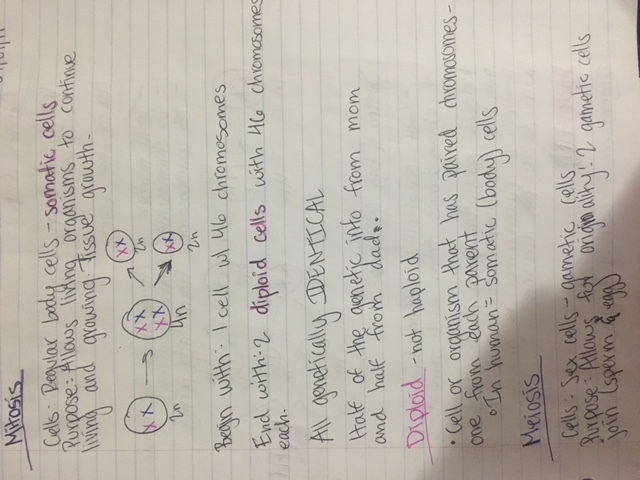 Mitosis
Cells: Regular body cells - somatic cells
Purpose: Allows living organisms to continue
living and growing. Tissue growth.
xx
2n
xx
xx
4n
xx
2n
xx
2n
Begin with: 1 cell w/ 46 chromosomes
End with: 2 diploid cells with 46 chromosomes
each.
All genetically IDENTICAL
Half of the genetic info from mom
and half from dad.
Diploid - not haploid
• Cell or organism that has paired chromosomes -
one from each parent
• In human = somatic (body) cells
Meiosis
Cells: Sex cells - gametic cells
Purpose: Allows for originality: 2 gametic cells
join (sperm & egg)